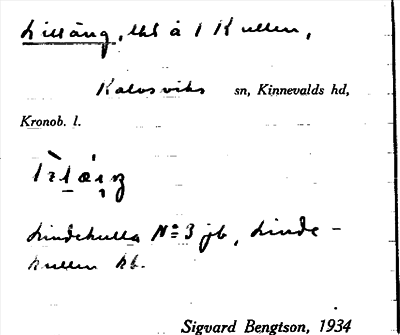 Lilläng, lht å 1 Kullen,
Kalvsviks sn, Kinnevalds hd,
Kronob. l.
Lindekulla No 3 jb, Linde-
kullen kb.
Sigvard Bengtson, 1934